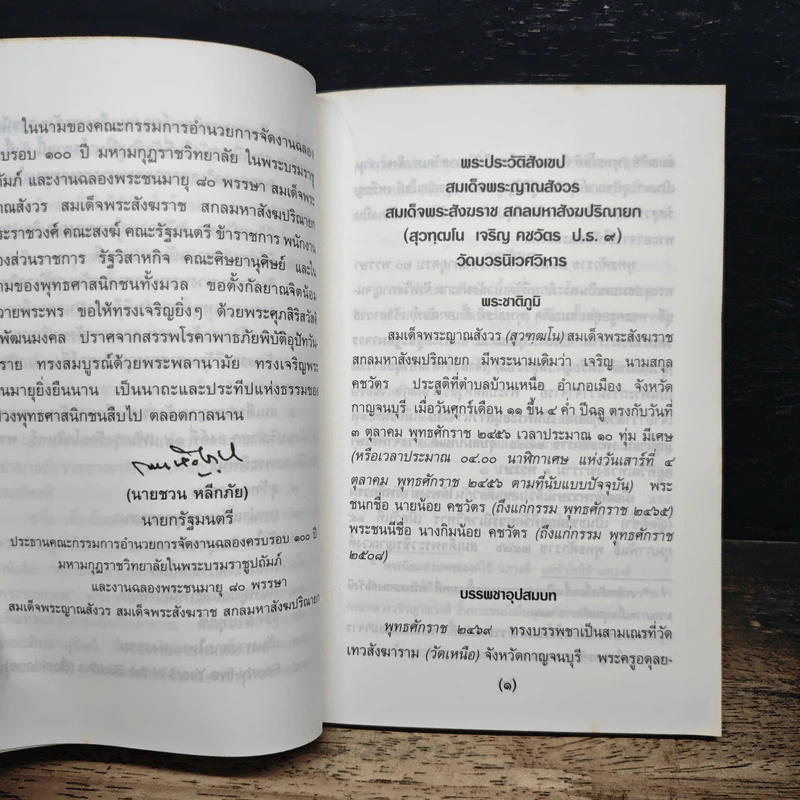 ในนามของคณะกรรมการอำนวยการจัดงานฉลอง
บรอบ ๑๐๐ ปี มหามกุฏราชวิทยาลัย ในพระบรมราชู
ถัมภ์ และงานฉลองพระชนมายุ ๘๐ พรรษา สมเด็จพระ
าณสังวร สมเด็จพระสังฆราช สกลมหาสังฆปริณายก
ระราชวงศ์ คณะสงฆ์ คณะรัฐมนตรี ข้าราชการ พนักงาน
องส่วนราชการ รัฐวิสาหกิจ คณะศิษยานุศิษย์ และใน
ามของพุทธศาสนิกชนทั้งมวล ขอตั้งกัลยาณจิตน้อม
วายพระพร ขอให้ทรงเจริญยิ่งๆ ด้วยพระศุภสิริสวัสดิ์
พัฒนมงคล ปราศจากสรรพโรคาพาธภัยพิบัติอุปัทวัน
ราย ทรงสมบูรณ์ด้วยพระพลานามัย ทรงเจริญพระ
นมายุยิ่งยืนนาน เป็นนาถะและประทีปแห่งธรรมของ
วงพุทธศาสนิกชนสืบไป ตลอดกาลนาน
(นายชวน หลีกภัย)
นายกรัฐมนตรี
ประธานคณะกรรมการอำนวยการจัดงานฉลองครบรอบ ๑๐๐ ปี
มหามกุฏราชวิทยาลัยในพระบรมราชูปถัมภ์
และงานฉลองพระชนมายุ ๘๐ พรรษา
สมเด็จพระญาณสังวร สมเด็จพระสังฆราช สกลมหาสังฆปริณายก
พระประวัติสังเขป
สมเด็จพระญาณสังวร
สมเด็จพระสังฆราช สกลมหาสังฆปริณายก
(สุวฑฺฒโน เจริญ คชวัตร ป.ธ. ๙)
วัดบวรนิเวศวิหาร
พระชาติภูมิ
สมเด็จพระญาณสังวร (สุวฑฺฒโน) สมเด็จพระสังฆราช
สกลมหาสังฆปริณายก มีพระนามเดิมว่า เจริญ นามสกุล
คชวัตร ประสูติที่ตำบลบ้านเหนือ อำเภอเมือง จังหวัด
กาญจนบุรี เมื่อวันศุกร์เดือน ๑๑ ขึ้น ๔ ค่ำ ปีฉลู ตรงกับวันที่
๓ ตุลาคม พุทธศักราช ๒๔๕๖ เวลาประมาณ ๑๐ ทุ่ม มีเศษ
(หรือเวลาประมาณ ๐๔.๐๐ นาฬิกาเศษ แห่งวันเสาร์ที่ ๔
ตุลาคม พุทธศักราช ๒๔๕๖ ตามที่นับแบบปัจจุบัน) พระ
ชนกชื่อ นายน้อย คชวัตร (ถึงแก่กรรม พุทธศักราช ๒๔๖๕)
พระชนนีชื่อ นางกิมน้อย คชวัตร (ถึงแก่กรรม พุทธศักราช
๒๕๐๘)
บรรพชาอุปสมบท
พุทธศักราช ๒๔๖๙ ทรงบรรพชาเป็นสามเณรที่วัด
เทวสังฆาราม (วัดเหนือ) จังหวัดกาญจนบุรี พระครูอดุลย-
(๑)